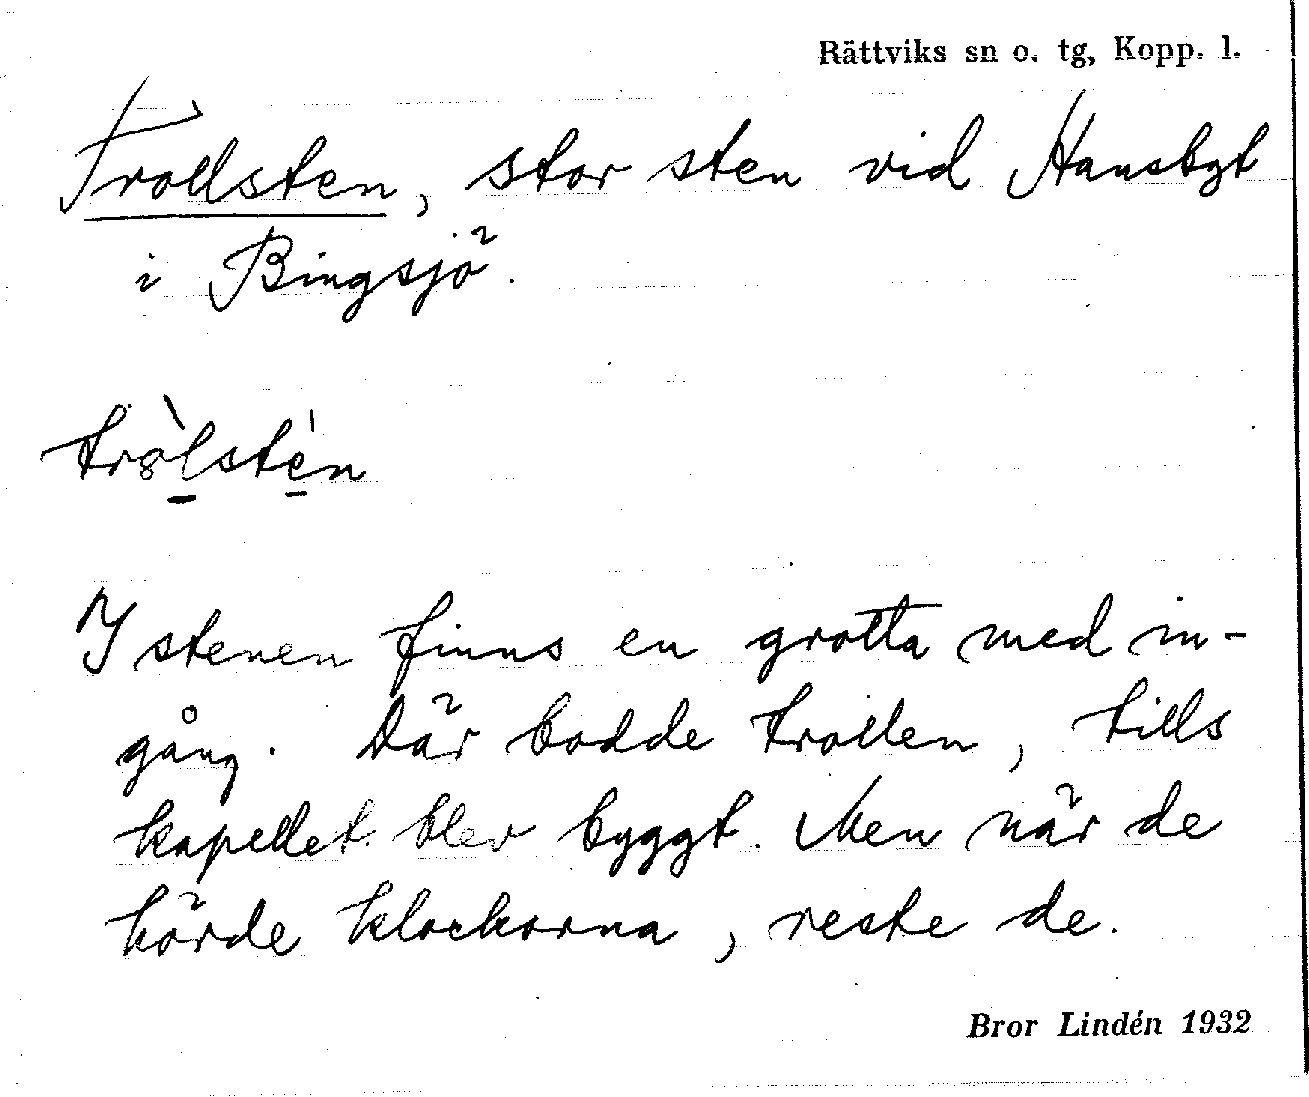 Rättviks sn o. tg, Kopp. l.
Trollsten, stor sten vid Hansbyt
i Bingsjö.
tròlstèn
I stenen finns en grotta med in-
gång. Där bodde trollen, tills
kapellet blev byggt. Men när de
hörde klockorna, reste de.
Bror Lindén 1932